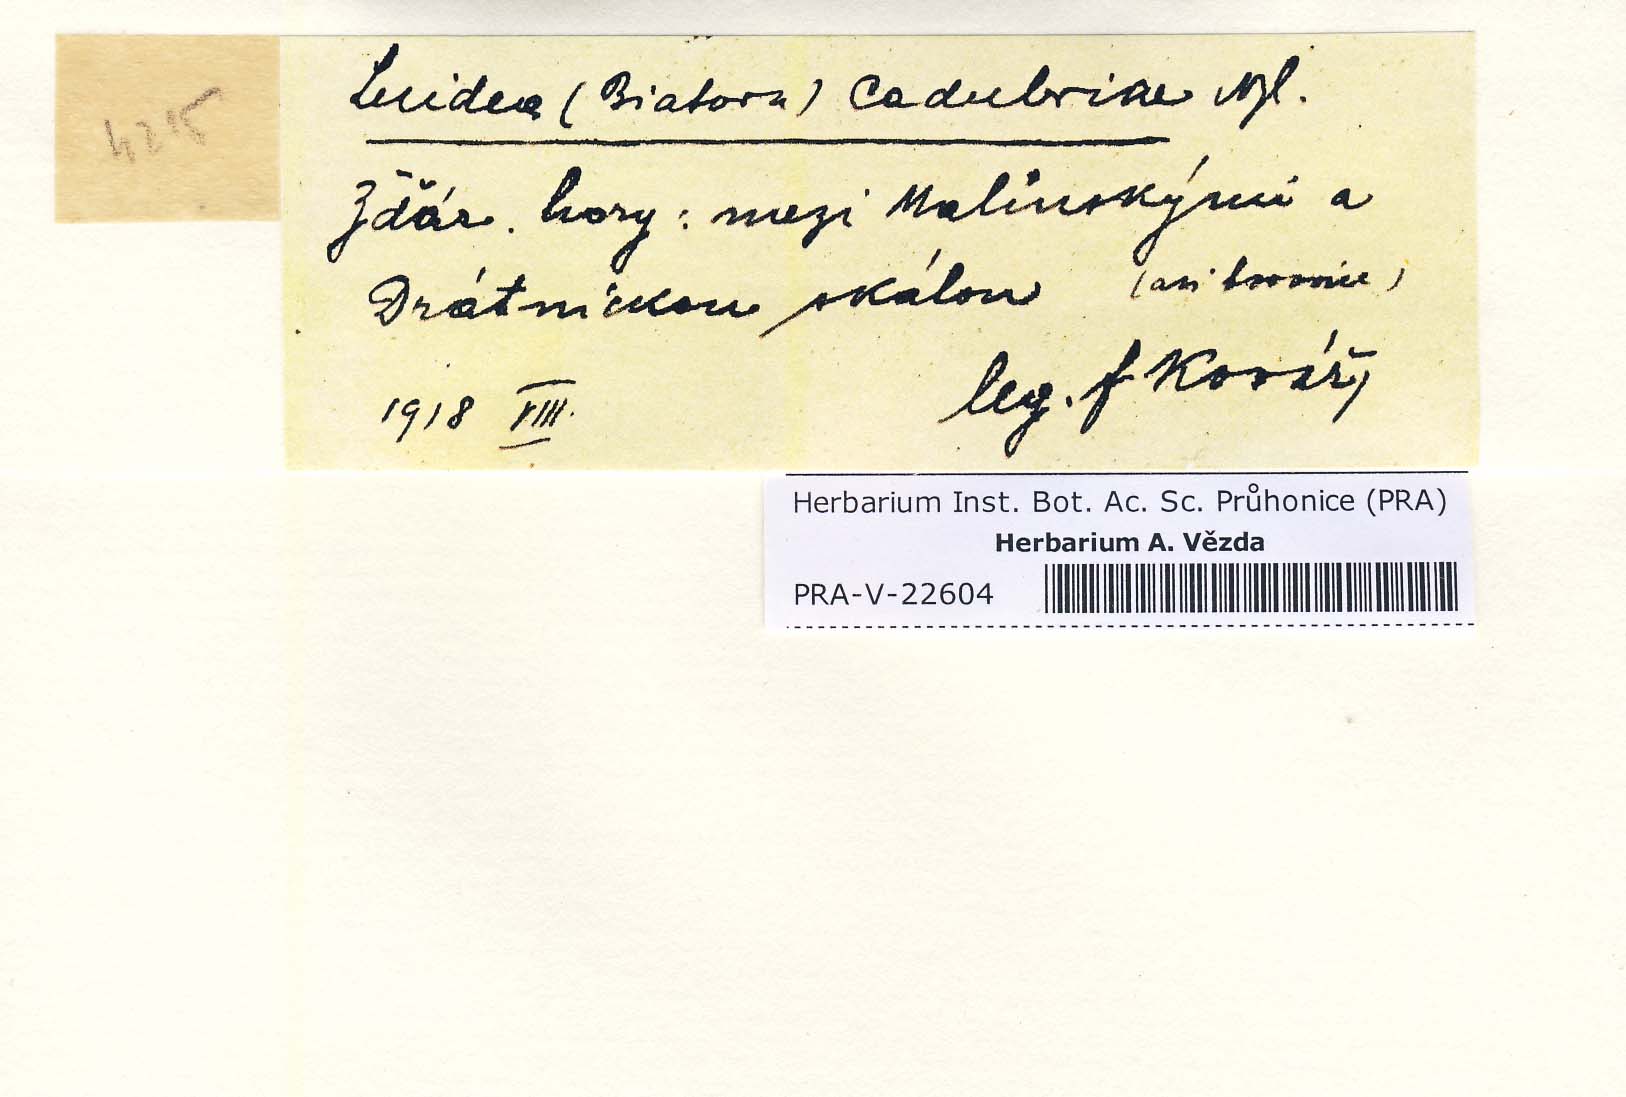 4215
Lecidea (Biatora) Cadubriae Nyl.
Žďár. hory: mezi Malínskými a
Drátnickou skálou (asi borovice)
1918 VIII.
leg. f Kovář
Herbarium Inst. Bot. Ac. Sc. Průhonice (PRA)
Herbarium A. Vězda
PRA-V-22604